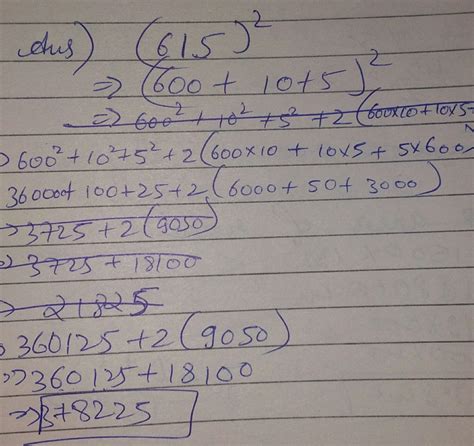 Ans) (615)²
⇒ (600 + 10+5)²
⇒ 600² + 10² + 5² + 2(600×10 + 10×5
⇒ 600² + 10² + 5² + 2(600×10 + 10×5 + 5×600
360000+ 100+25+2(6000+50+3000)
⇒ 3725 + 2(9050)
⇒ 3725 + 18100
⇒ 21825
⇒ 360125 + 2(9050)
⇒ 360125 + 18100
⇒ 378225